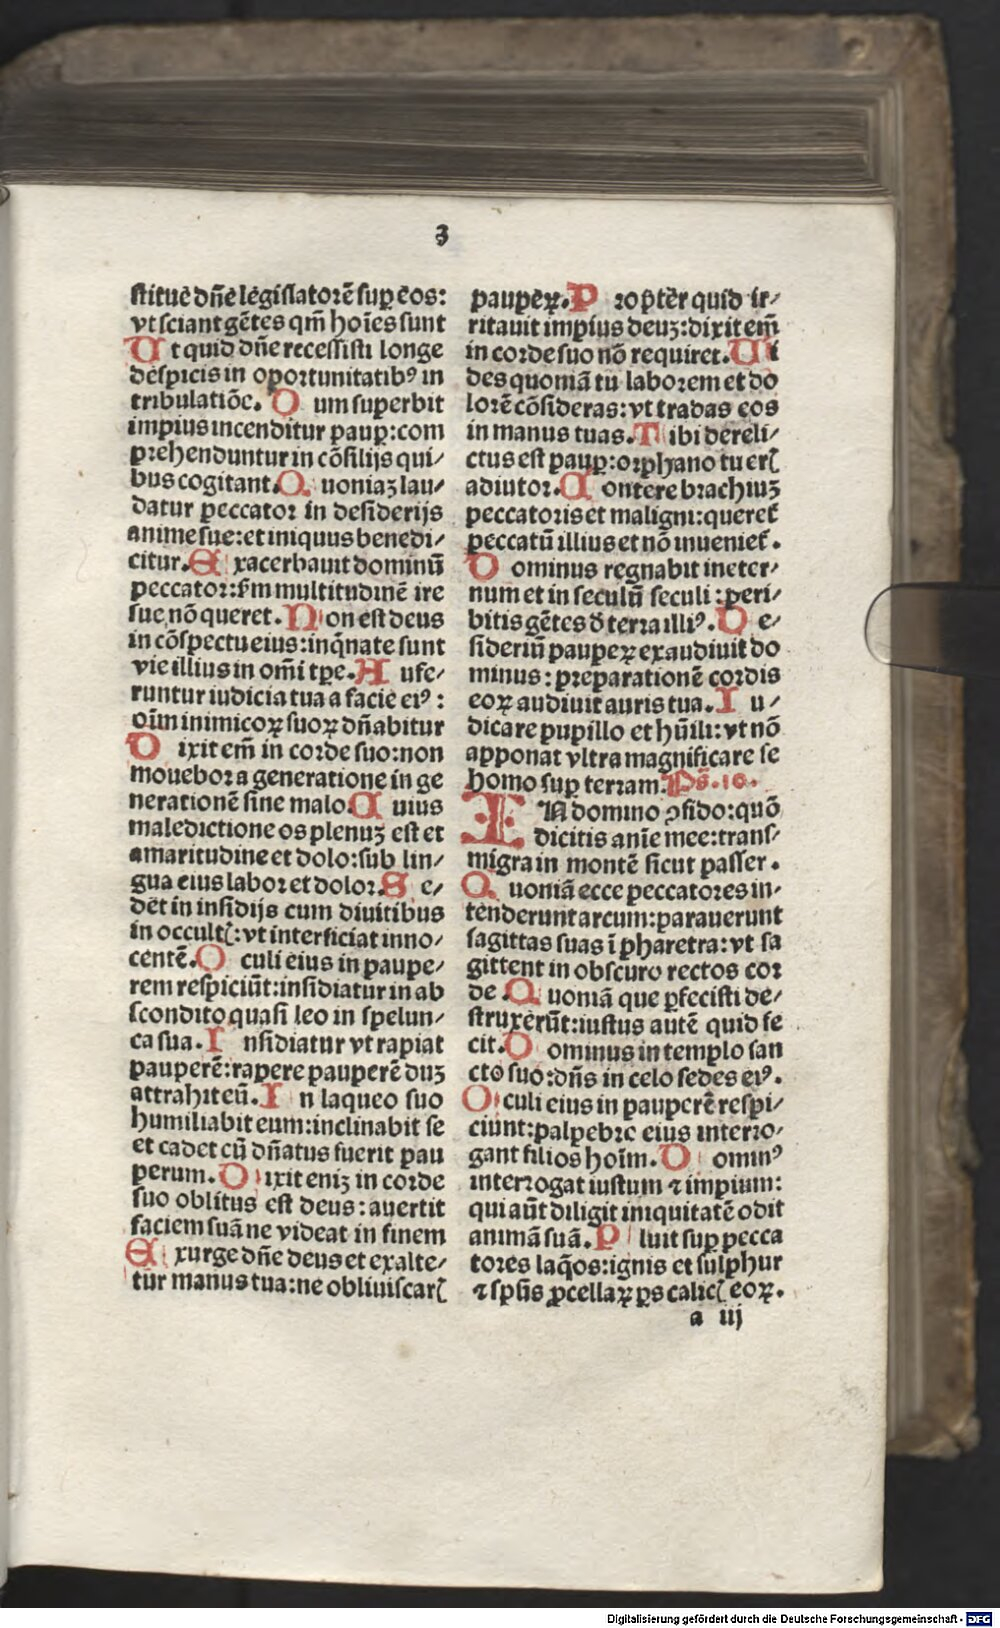 3
stituē dn̄e legislatorē sup eos:
vt sciant gētes qm̄ hoīes sunt
Ut quid dn̄e recessisti longe
despicis in oportunitatibꝰ in
tribulatiōe. Dum superbit
impius incenditur paup̱:com
prehenduntur in cōsilijs qui/
bus cogitant. Quoniaꝫ lau/
datur peccator in desiderijs
anime sue:et iniquus benedi/
citur. Exacerbauit dominū
peccator:s̄m multitudinē ire
sue nō queret. Non est deus
in cōspectu eius:inq̄nate sunt
vie illius in om̄i tp̄e. Aufe/
runtur iudicia tua a facie eiꝰ:
oīm inimicoꝝ suoꝝ dn̄abitur
Dixit em̄ in corde suo:non
mouebor a generatione in ge
nerationē sine malo. Cuius
maledictione os plenuꝫ est et
amaritudine et dolo:sub lin/
gua eius labor et dolor. Se/
det in insidijs cum diuitibus
in occultꝭ:vt interficiat inno/
centē. Oculi eius in paupe/
rem respiciūt:insidiatur in ab
scondito quasi leo in spelun/
ca sua. Insidiatur vt rapiat
pauperē:rapere pauperē duꝫ
attrahit eū. In laqueo suo
humiliabit eum:inclinabit se
et cadet cū dn̄atus fuerit pau
perum. Dixit eniꝫ in corde
suo oblitus est deus:auertit
faciem suā ne videat in finem
Exurge dn̄e deus et exalte/
tur manus tua:ne obliuiscarꝭ
paupeꝝ. Propter quid ir/
ritauit impius deuꝫ:dixit em̄
in corde suo nō requiret. Ui
des quoniā tu laborem et do
lorē cōsideras:vt tradas eos
in manus tuas. Tibi dereli/
ctus est paup̱:orphano tu erꝭ
adiutor. Contere brachiuꝫ
peccatoris et maligni:queret̄
peccatū illius et nō inueniet̄.
Dominus regnabit in eter/
num et in seculū seculi:peri/
bitis gētes d̄ terra illiꝰ. De/
sideriū paupeꝝ exaudiuit do
minus:preparationē cordis
eoꝝ audiuit auris tua. Iu/
dicare pupillo et hūili:vt nō
apponat vltra magnificare se
homo sup̱ terram. Ps̄.10.
IN domino ꝯfido:quō
dicitis anīe mee:trans/
migra in montē sicut passer.
Quoniā ecce peccatores in/
tenderunt arcum:parauerunt
sagittas suas ī pharetra:vt sa
gittent in obscuro rectos cor
de. Quoniā que ꝑfecisti de/
struxerūt:iustus autē quid fe
cit. Dominus in templo san
cto suo:dn̄s in celo sedes eiꝰ.
Oculi eius in pauperē respi/
ciunt:palpebre eius interro/
gant filios hoīm. Dominꝰ
interrogat iustum ⁊ impium:
qui aūt diligit iniquitatē odit
animā suā. Pluit sup̱ pecca
tores laq̄os:ignis et sulphur
⁊ sp̄ūs ꝓcellaꝝ ꝑs calicꝭ eoꝝ.
a iij
Digitalisierung gefördert durch die Deutsche Forschungsgemeinschaft - DFG